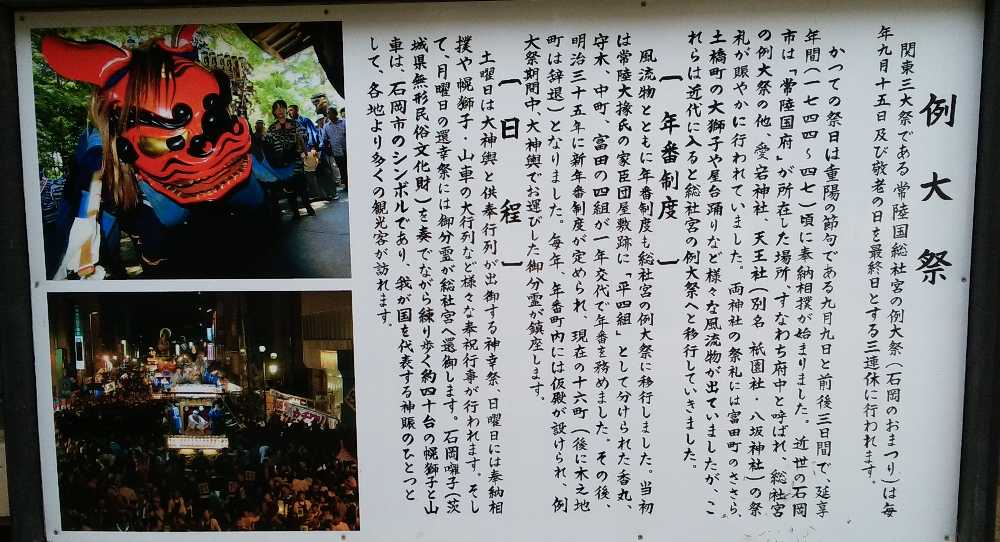 例大祭
関東三大祭である常陸国総社宮の例大祭（石岡のおまつり）は毎
年九月十五日及び敬老の日を最終日とする三連休に行われます。
かつての祭日は重陽の節句である九月九日と前後三日間で、延享
年間（一七四四～四七）頃に奉納相撲が始まりました。近世の石岡
市は「常陸国府」が所在した場所、すなわち府中と呼ばれ、総社宮
の例大祭の他、愛宕神社、天王社（別名 祇園社・八坂神社）の祭
礼が賑やかに行われていました。両神社の祭礼には富田町のささら、
土橋町の大獅子や屋台踊りなど様々な風流物が出ていましたが、こ
れらは近代に入ると総社宮の例大祭へと移行していきました。
［年番制度］
風流物とともに年番制度も総社宮の例大祭に移行しました。当初
は常陸大掾氏の家臣団屋敷跡に「平四組」として分けられた香丸、
守木、中町、富田の四組が一年交代で年番を務めました。その後、
明治三十五年に新年番制度が定められ、現在の十六町（後に木之地
町は辞退）となりました。毎年、年番町内には仮殿が設けられ、例
大祭期間中、大神輿でお運びした御分霊が鎮座します。
［日程］
土曜日は大神輿と供奉行列が出御する神幸祭、日曜日には奉納相
撲や幌獅子・山車の大行列など様々な奉祝行事が行われます。そし
て、月曜日の還幸祭には御分霊が総社宮へ還御します。石岡囃子（茨
城県無形民俗文化財）を奏でながら練り歩く約四十台の幌獅子と山
車は、石岡市のシンボルであり、我が国を代表する神賑のひとつと
して、各地より多くの観光客が訪れます。